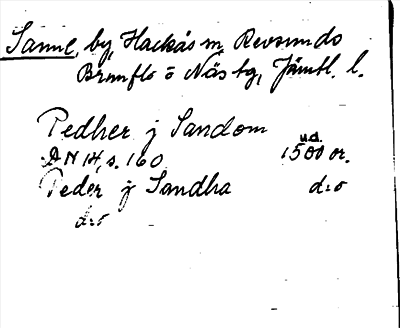 Sanne, by, Hackås sn, Revsunds
Brunflo o Näs tg, Jämtl. l.
Pedher j Sandom u.d.
DN 14, s. 160 1500 or.
Peder j Sandha d:o
d:o